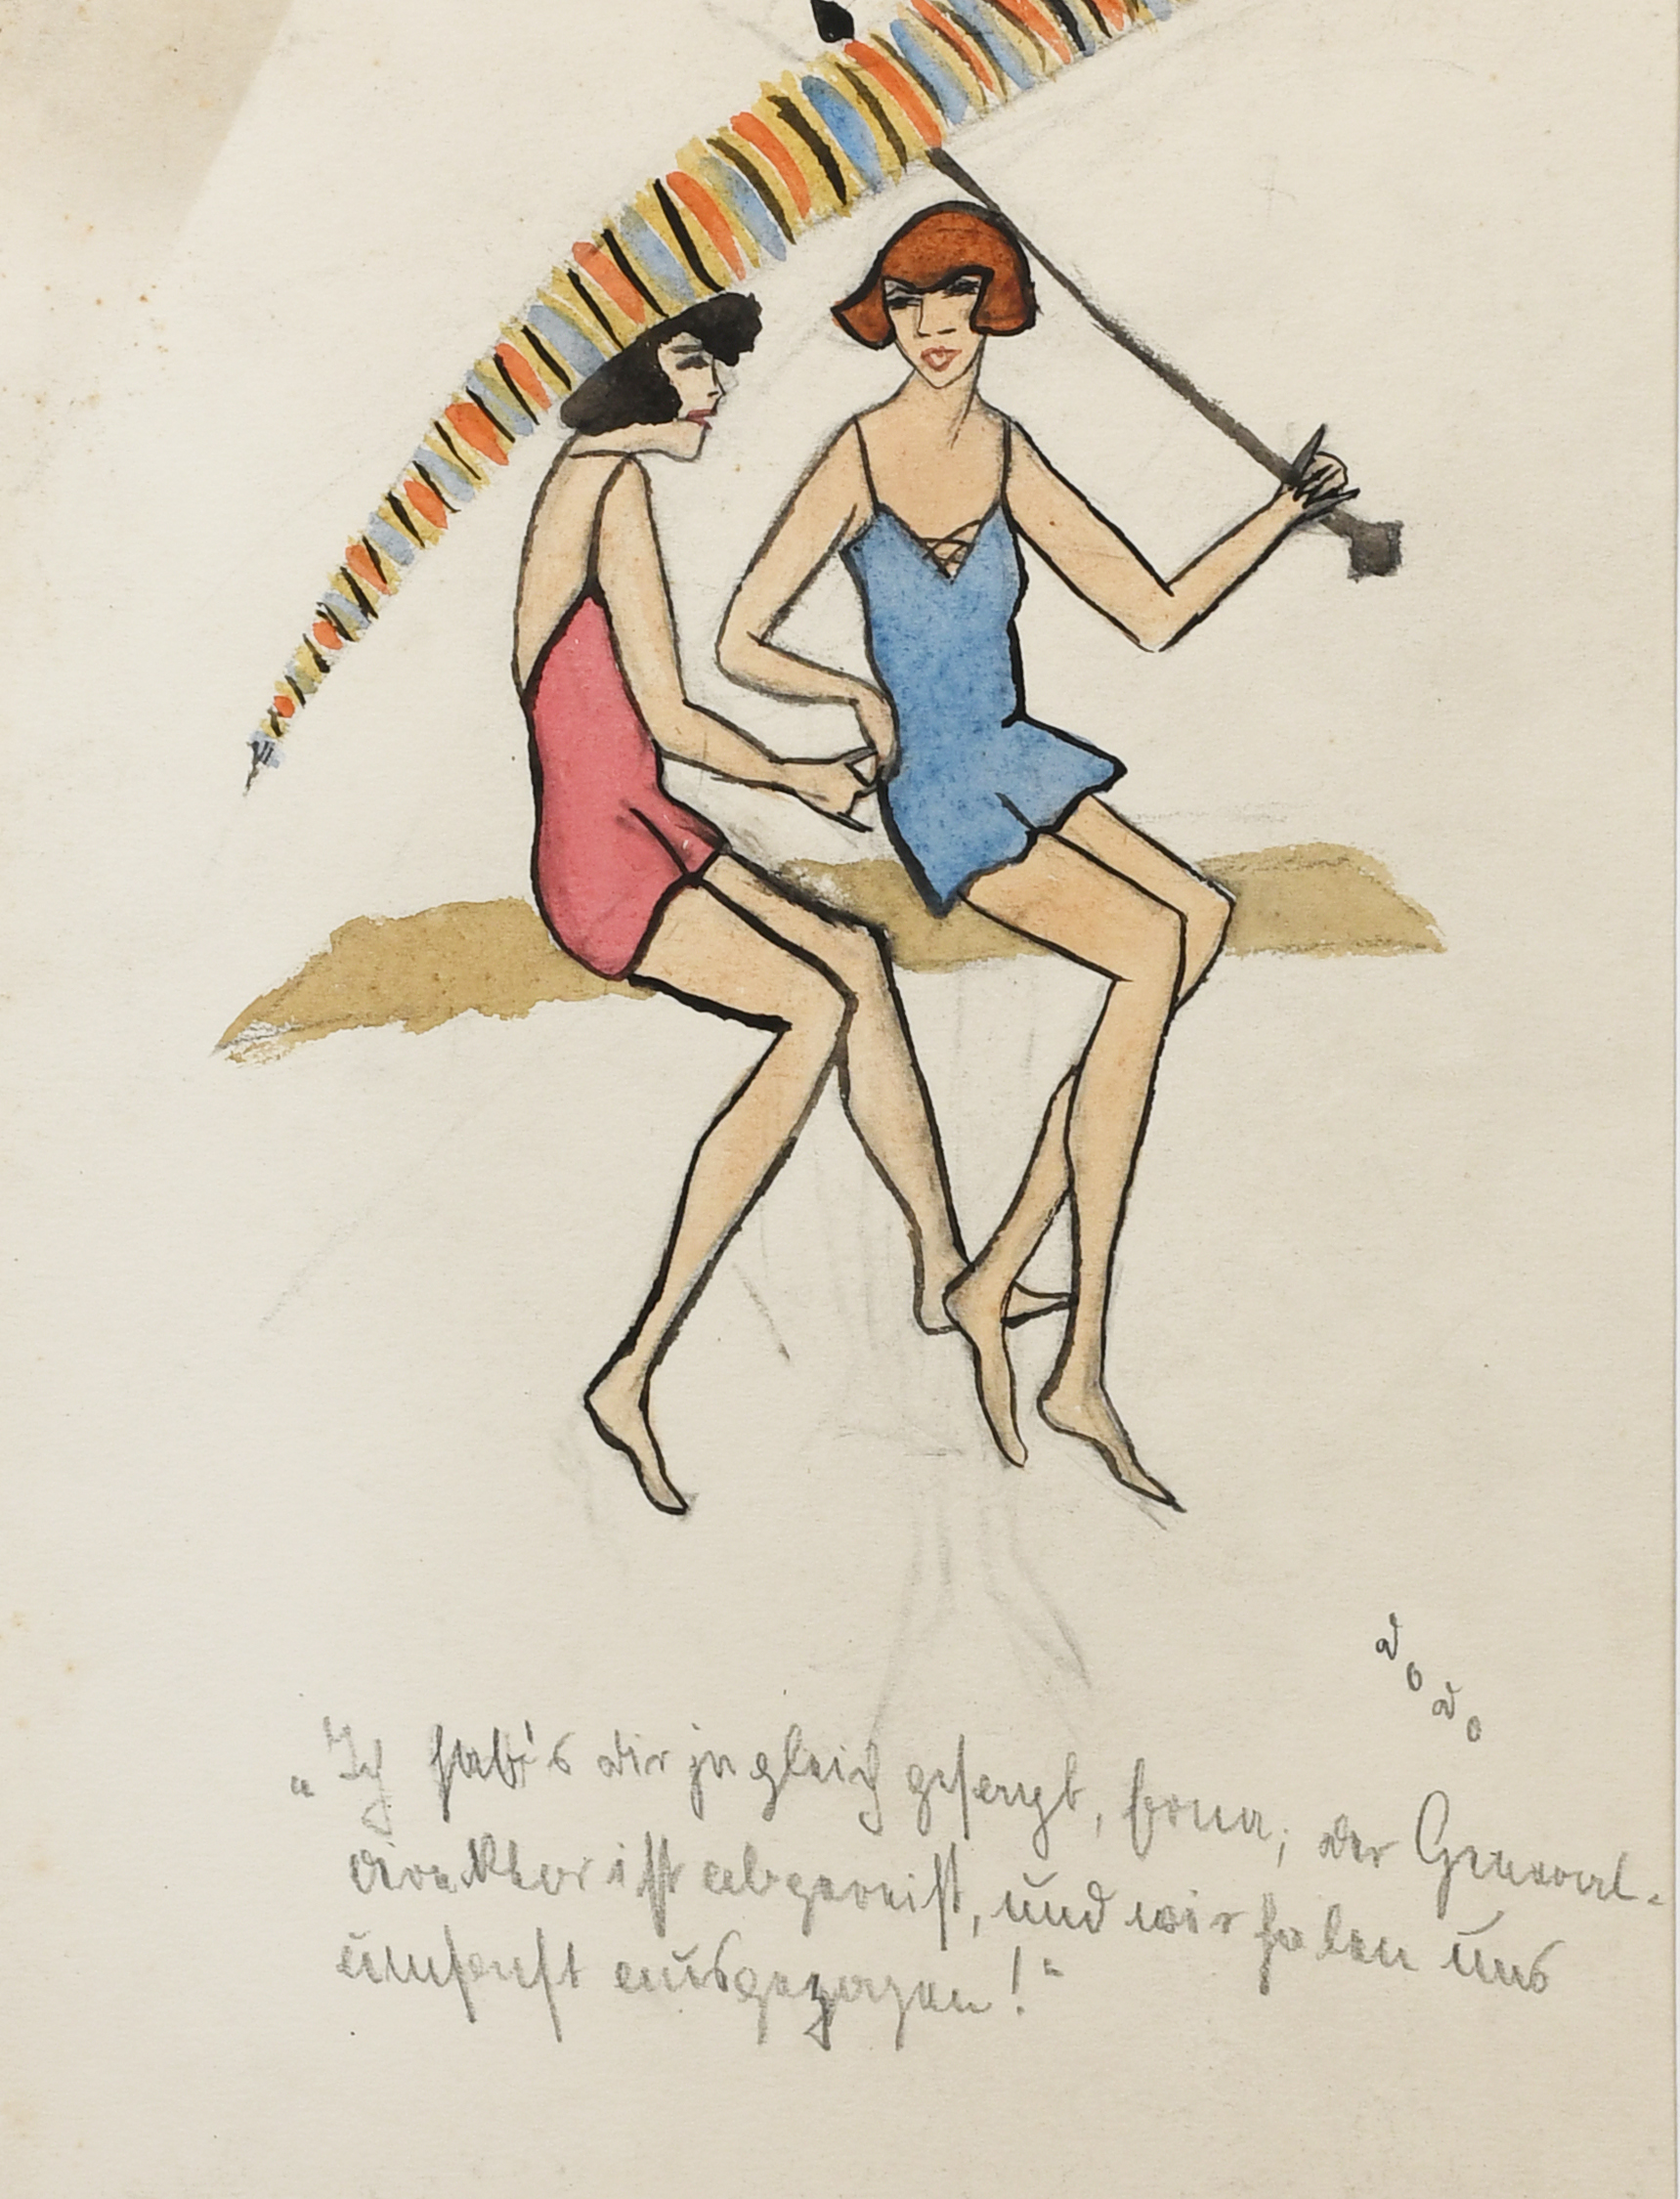 dodo
„Ich hab's dir ja gleich gesagt, Erna; der General-
direktor ist abgereist, und wir haben uns
umsonst ausgezogen!“